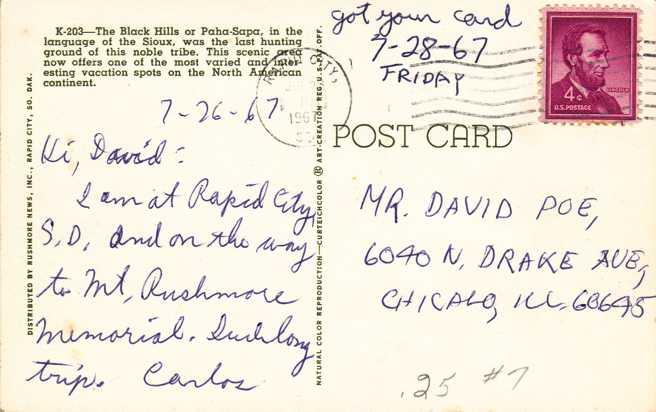 K-203—The Black Hills or Paha-Sapa, in the
language of the Sioux, was the last hunting
ground of this noble tribe. This scenic area
now offers one of the most varied and inter
esting vacation spots on the North American
continent.
7-26-67
Hi, David:
I am at Rapid City,
S.D. and on the way
to Mt. Rushmore
Memorial. Such long
trip. Carlos
DISTRIBUTED BY RUSHMORE NEWS, INC., RAPID CITY, SO. DAK.
NATURAL COLOR REPRODUCTION—CURTEICHCOLOR ® ART-CREATION REG. U.S. PAT. OFF.
got your card
7-28-67
FRIDAY
RAPID CITY,
4¢
U.S. POSTAGE
LINCOLN
POST CARD
MR. DAVID POE,
6040 N. DRAKE AVE,
CHICAGO, ILL. 60645
.25 #7